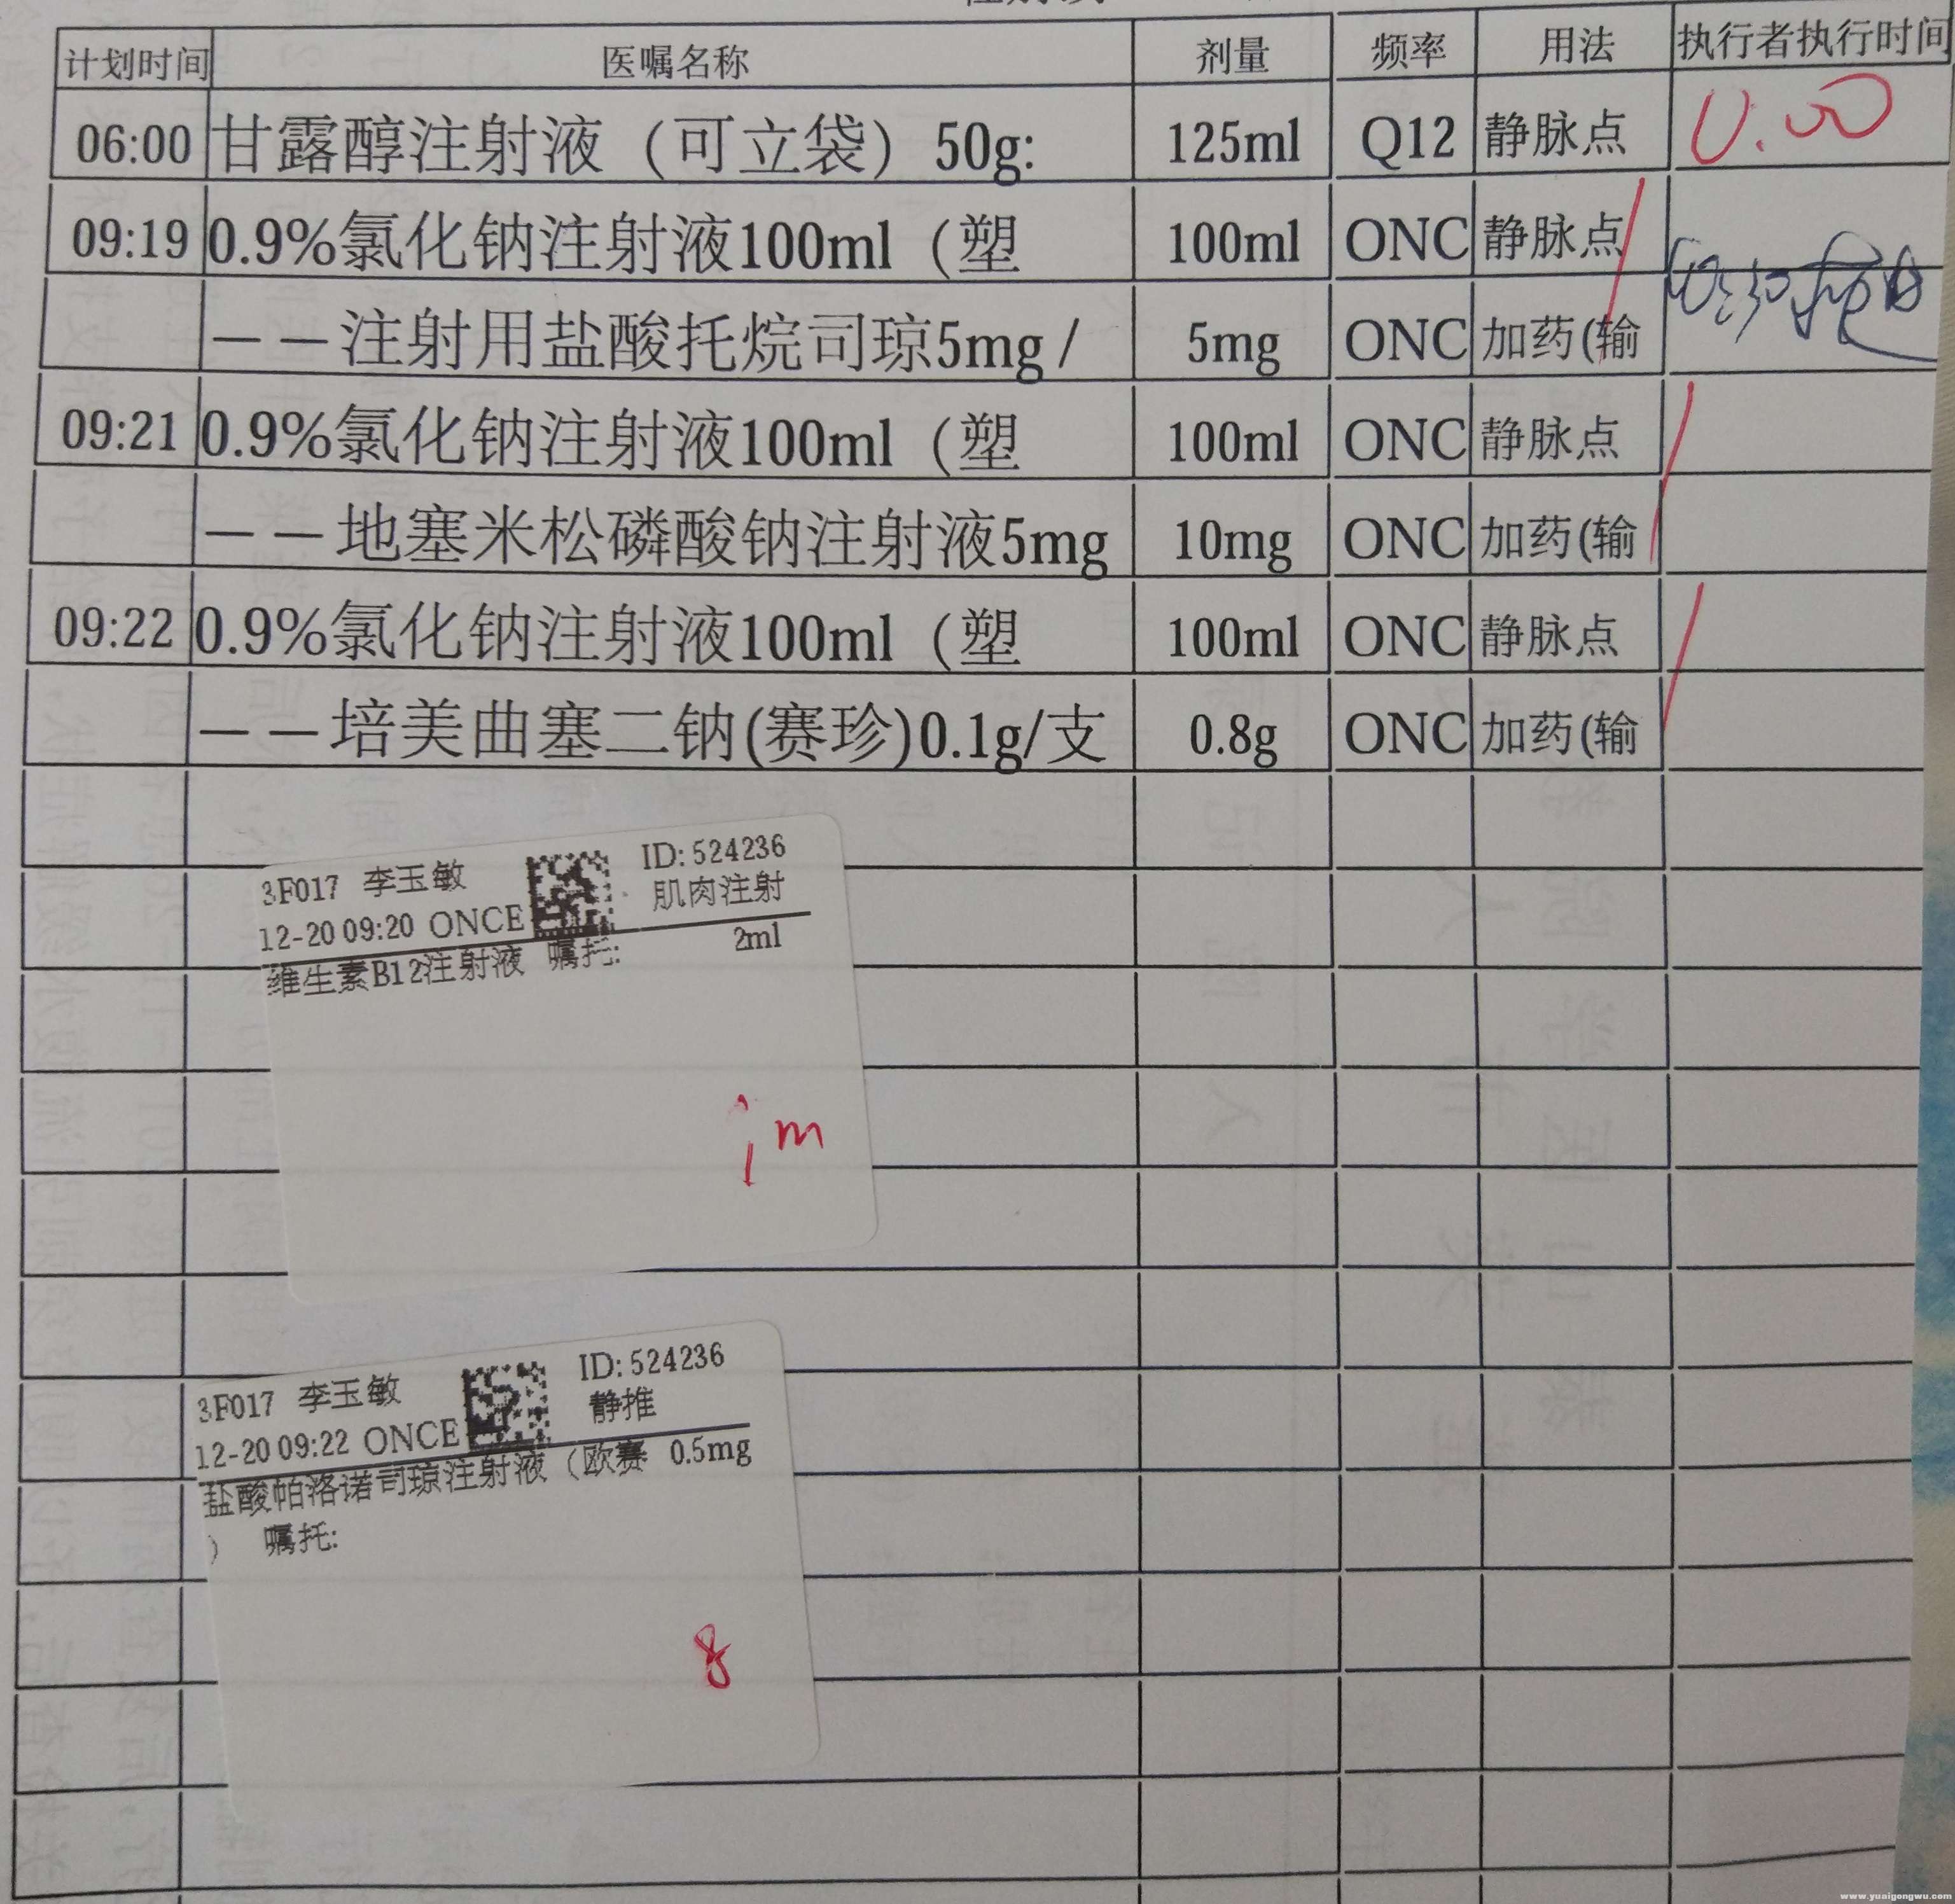 计划时间 医嘱名称 剂量 频率 用法 执行者执行时间
06:00 甘露醇注射液（可立袋）50g: 125ml Q12 静脉点
09:19 0.9%氯化钠注射液100ml（塑 100ml ONC 静脉点
——注射用盐酸托烷司琼5mg/ 5mg ONC 加药(输
09:21 0.9%氯化钠注射液100ml（塑 100ml ONC 静脉点
——地塞米松磷酸钠注射液5mg 10mg ONC 加药(输
09:22 0.9%氯化钠注射液100ml（塑 100ml ONC 静脉点
——培美曲塞二钠(赛珍)0.1g/支 0.8g ONC 加药(输
3F017 李玉敏 ID:524236
12-20 09:20 ONCE 肌肉注射
维生素B12注射液 嘱托: 2ml
im
3F017 李玉敏 ID:524236
12-20 09:22 ONCE 静推
盐酸帕洛诺司琼注射液（欧赛 0.5mg
） 嘱托:
8
www.yuaigongwu.com